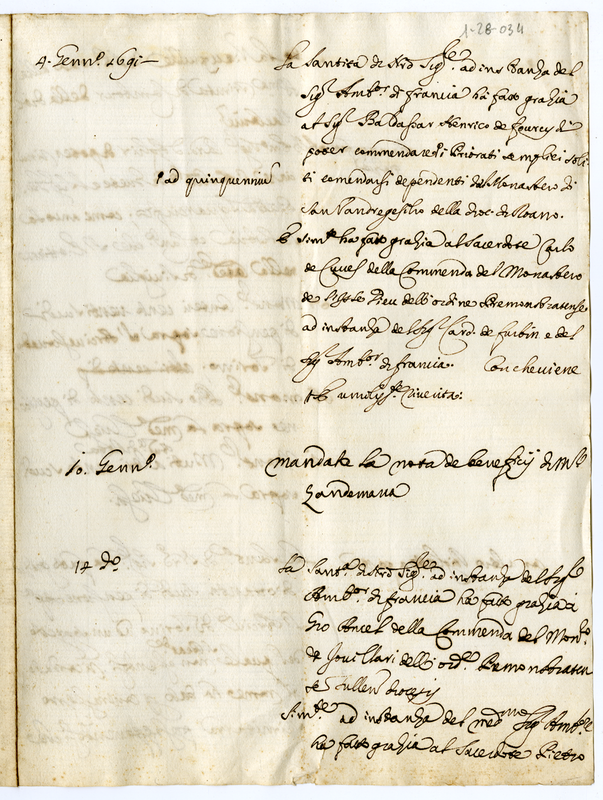 1-28-034
4. Genn.º 1691 —
La Santità di Nrõ Sig.re ad instanza del
Sig.r Amb.or di francia hà fatto grazia
al Sig.r Baldassar Henrico de fourcy di
poter commendare i Priorati semplici soli-
ti comendarsi dependenti dal Monastero di
ad quinquenniũ
San Vandregesilio della dioc. di Roano.
Sim.te ha fatto grazia al Sacerdote Carlo
de della Commenda del Monastero
de dell'ordine Premonstratense
ad instanza del Sig.r Card. de furbin e del
Sig.r Amb.or di francia. Con che viene
riverita.
10. Genn.º
mandata la nota de beneficij di M.r
Zandemaria
14 d.º
La Sant.à di Nrõ Sig.re ad instanza del Sig.r
Amb.or di francia ha fatto grazia à
Gio Ancel della Commenda del Mon.ro
de Jovillari dell'ord.e Premonstraten
se Tullen diocesij
Sim.te ad instanza del med.mo Sig.r Amb.re
ha fatto grazia al Sacerdote Pietro